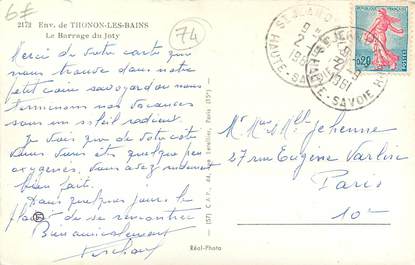 6F
2172 Env. de THONON-LES-BAINS
Le Barrage du Joty
74
Merci de votre carte qui
nous trouve dans notre
petit coin savoyard où nous
terminons nos vacances
sous un soleil radieux.
Je vois que de votre côté
vous vous êtes quelque peu
oxygénés, vous avez rudement
bien fait.
Dans quelques jours le
plaisir de se rencontrer
Bien amicalement
Réal-Photo
POSTES
0,20
HAUTE-SAVOIE
HAUTE-SAVOIE
Mr Mme et Melle Jehenne
27 rue Eugène Varlin
Paris
10e